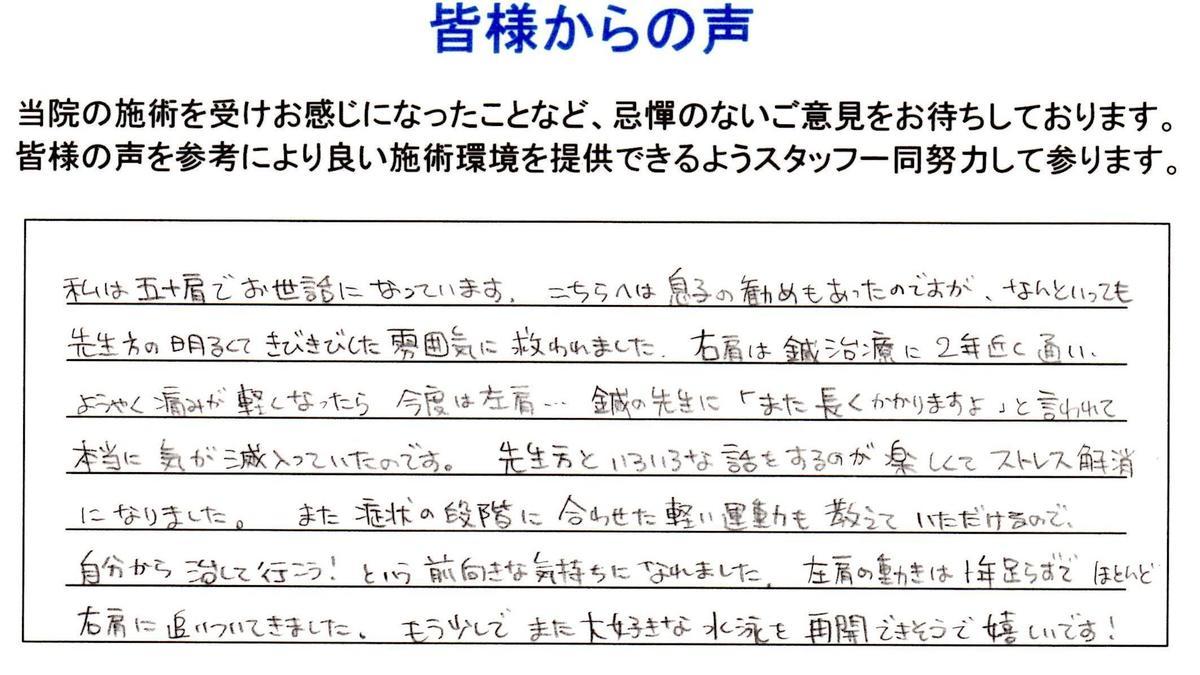 皆様からの声
当院の施術を受けお感じになったことなど、忌憚のないご意見をお待ちしております。
皆様の声を参考により良い施術環境を提供できるようスタッフ一同努力して参ります。
私は五十肩でお世話になっています。こちらへは息子の勧めもあったのですが、なんといっても
先生方の明るくてきびきびした雰囲気に救われました。右肩は鍼治療に2年近く通い、
ようやく痛みが軽くなったら今度は左肩… 鍼の先生に「また長くかかりますよ」と言われて
本当に気が滅入っていたのです。先生方といろいろな話をするのが楽しくてストレス解消
になりました。また症状の段階に合わせた軽い運動も教えていただけるので、
自分から治して行こう!という前向きな気持ちになれました。左肩の動きは1年足らずでほとんど
右肩に追いついてきました。もう少しでまた大好きな水泳を再開できそうで嬉しいです!